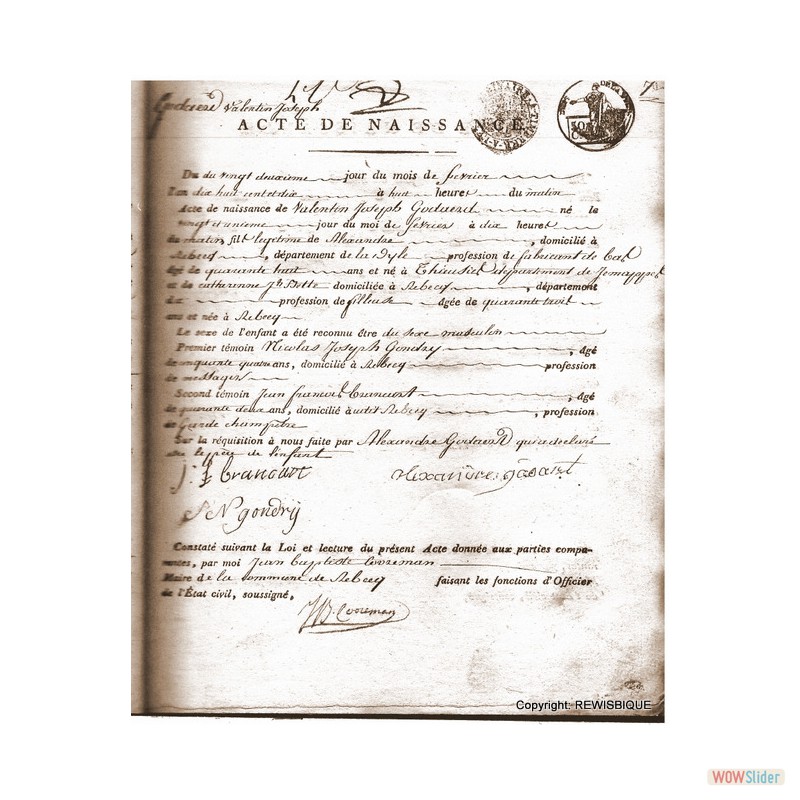 Godaerd Valentin Joseph
ACTE DE NAISSANCE
Du du vingt deuxieme jour du mois de fevrier
l'an dix huit cent et dix à huit heures du matin
Acte de naissance de Valentin Joseph Godaerd né le
vingt et unieme jour du moi de fevrier à dix heures
du matin, fils legitime de Alexandre , domicilié à
Rebecq , département de la Dyle profession de fabricant de bas
âgé de quarante huit ans et né à département de Jemappes
et de catherenne Jh domiciliée à Rebecq , département
profession de filleuse âgée de quarante trois
ans et née à Rebecq
Le sexe de l'enfant a été reconnu être du sexe masculin
Premier témoin Nicolas Joseph Gondry , âgé
de cinquante quatre ans, domicilié à Rebecq profession
de messager
Second témoin Jean francois brancart , âgé
de quarante deux ans, domicilié audit Rebecq , profession
de Garde champetre
Sur la réquisition à nous faite par Alexandre Godaerd qui a declaré
etre le père de l'enfant
J: f brancart alexandre godaart
N gondry
Constaté suivant la Loi et lecture du présent Acte donnée aux parties compa-
rantes, par moi Jean baptiste Cooreman
Maire de la commune de Rebecq faisant les fonctions d'Officier
de l'État civil, soussigné,
JB. Cooreman
Copyright: REWISBIQUE
WOWSlider